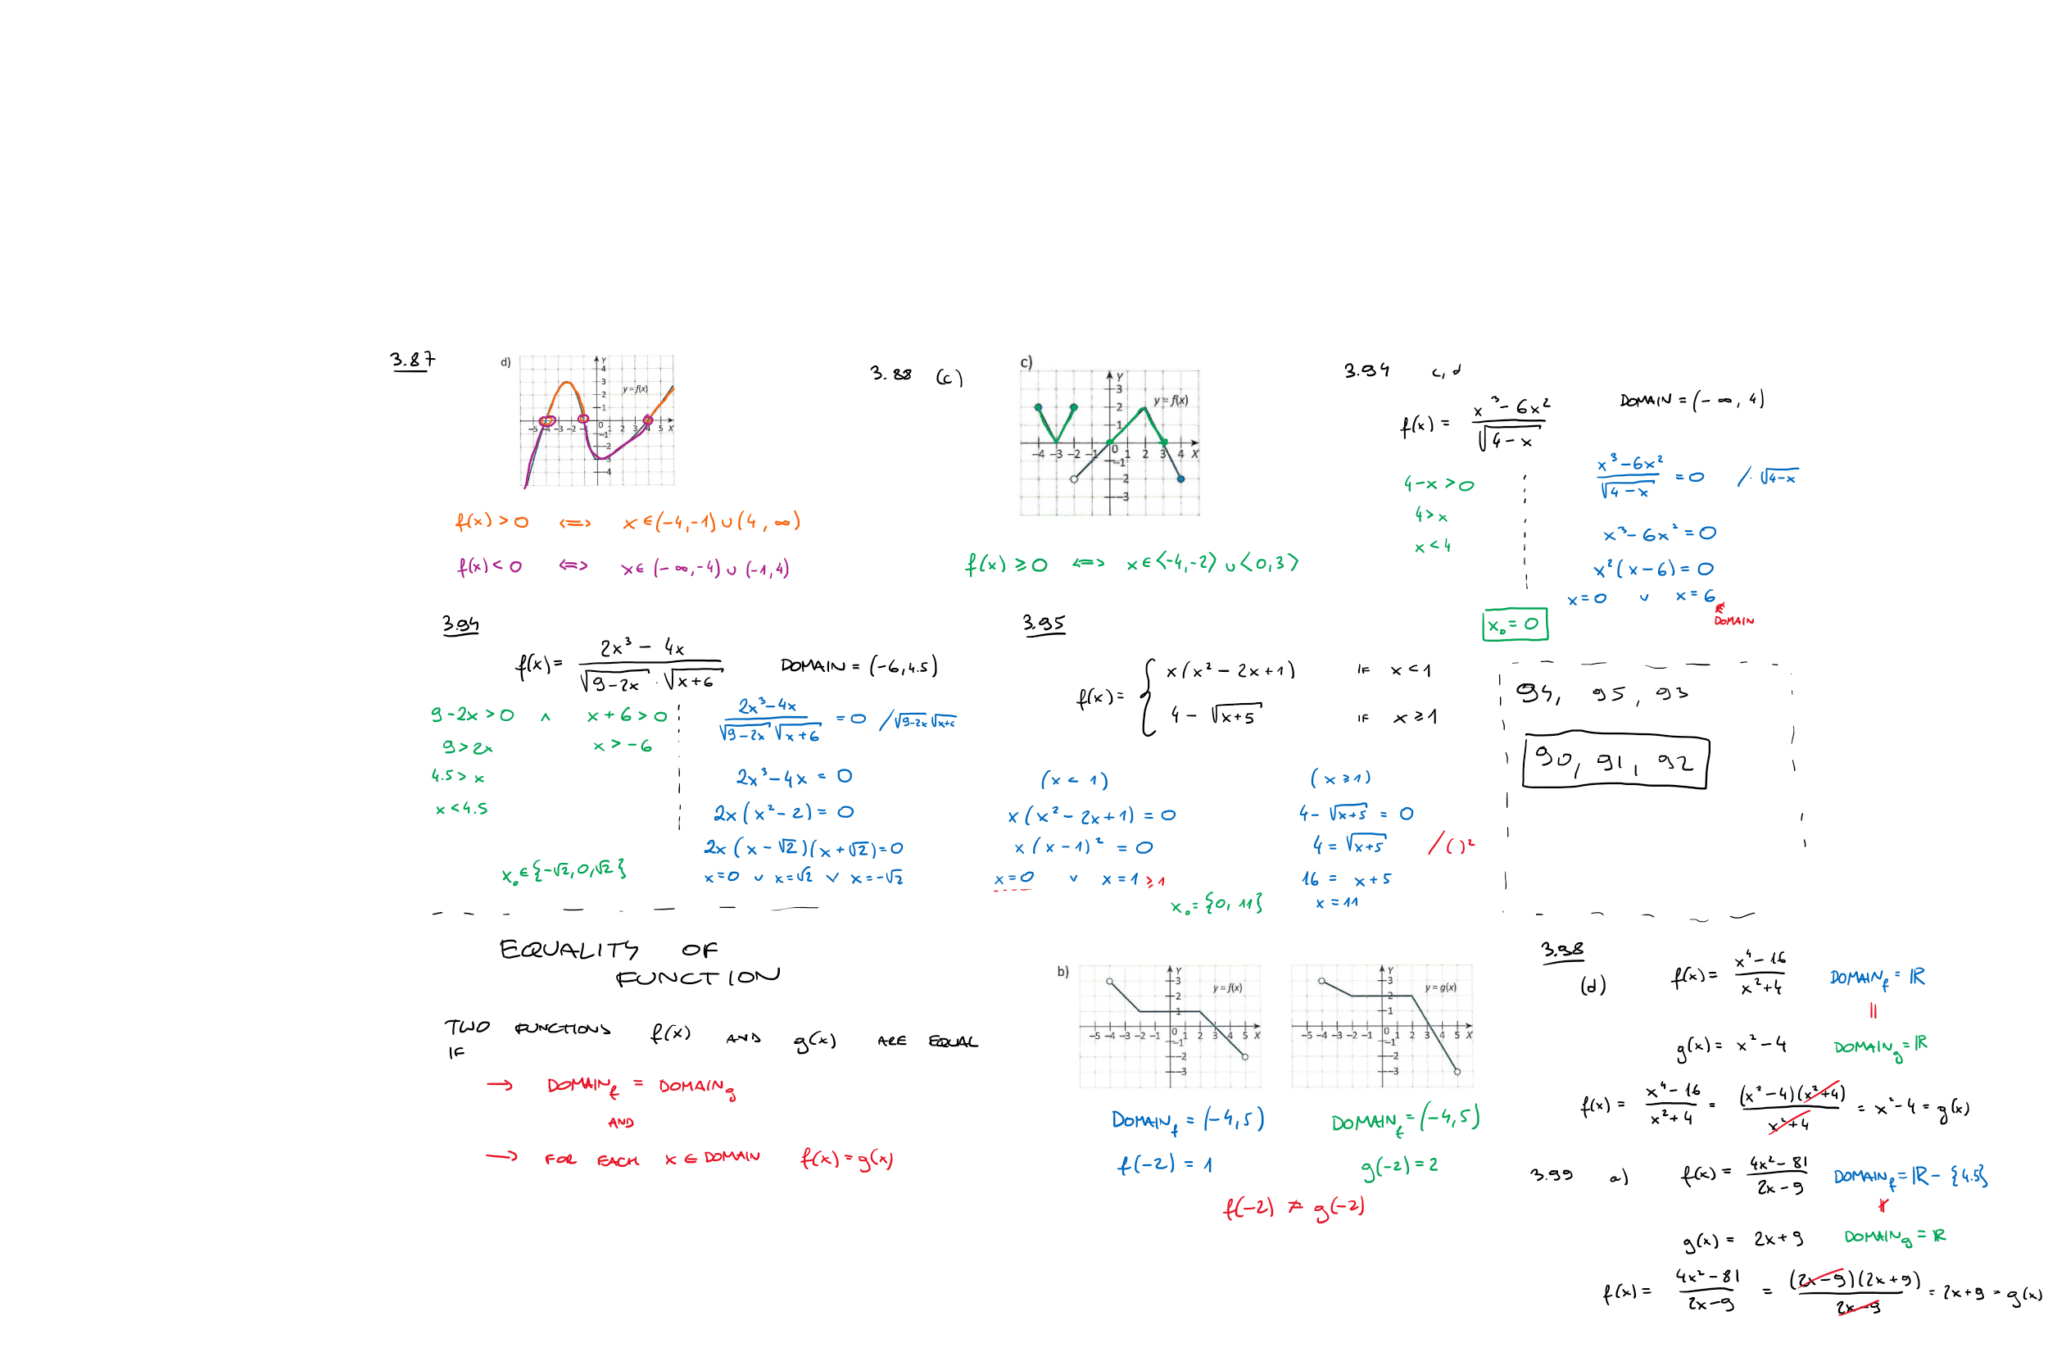 3.87
d)
y = f(x)
f(x) > 0 <=> x ∈ (-4,-1) ∪ (4, ∞)
f(x) < 0 <=> x ∈ (-∞,-4) ∪ (-1,4)
3.88 (c)
c)
y = f(x)
f(x) ≥ 0 <=> x ∈ <-4,-2> ∪ <0,3>
3.94 c,d
f(x) = (x³ - 6x²)/√(4-x) DOMAIN = (-∞, 4)
4-x > 0
4 > x
x < 4
(x³-6x²)/√(4-x) = 0 /·√(4-x)
x³ - 6x² = 0
x²(x-6) = 0
x=0 ∨ x=6
DOMAIN
x₀ = 0
3.94
f(x) = (2x³ - 4x)/(√(9-2x) · √(x+6)) DOMAIN = (-6,4.5)
9-2x > 0 ∧ x+6 > 0
9 > 2x x > -6
4.5 > x
x < 4.5
(2x³-4x)/(√(9-2x) √(x+6)) = 0 /√(9-2x) √(x+6)
2x³-4x = 0
2x(x²-2) = 0
2x(x-√2)(x+√2)=0
x=0 ∨ x=√2 ∨ x=-√2
x₀ ∈ {-√2,0,√2}
3.95
f(x) = { x(x² - 2x+1) IF x < 1
4 - √(x+5) IF x ≥ 1
(x < 1)
x(x² - 2x+1) = 0
x(x-1)² = 0
x=0 ∨ x=1 ≥1
(x ≥ 1)
4 - √(x+5) = 0
4 = √(x+5) /()²
16 = x+5
x = 11
x₀ = {0, 11}
94, 95, 93
90, 91, 92
EQUALITY OF
FUNCTION
TWO FUNCTIONS f(x) AND g(x) ARE EQUAL
IF
→ DOMAIN_f = DOMAIN_g
AND
→ FOR EACH x ∈ DOMAIN f(x) = g(x)
b)
y = f(x)
y = g(x)
DOMAIN_f = (-4,5)
f(-2) = 1
DOMAIN_f = (-4,5)
g(-2) = 2
f(-2) ≠ g(-2)
3.98
(d) f(x) = (x⁴-16)/(x²+4) DOMAIN_f = ℝ
=
g(x) = x²-4 DOMAIN_g = ℝ
f(x) = (x⁴-16)/(x²+4) = (x²-4)(x²+4)/(x²+4) = x²-4 = g(x)
3.99 a) f(x) = (4x²-81)/(2x-9) DOMAIN_f = ℝ - {4.5}
≠
g(x) = 2x+9 DOMAIN_g = ℝ
f(x) = (4x²-81)/(2x-9) = (2x-9)(2x+9)/(2x-9) = 2x+9 = g(x)